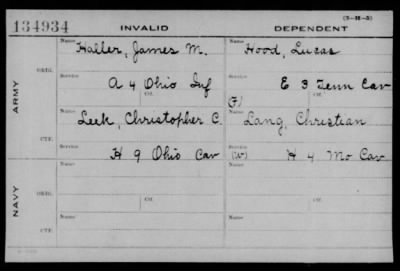 (3-H-5)
134934 INVALID DEPENDENT
Name Haller, James M. Name Hood, Lucas
ORIG.
Service A 4 Ohio Inf Service E 3 Tenn Cav
Of. Of.
ARMY
Name Leek, Christopher C. (F) Name Lang, Christian
CTF.
Service H 9 Ohio Cav Service (W) H 4 Mo Cav
Of. Of.
Name Name
ORIG.
Service Service
NAVY
Name Name
CTF.
Service Service